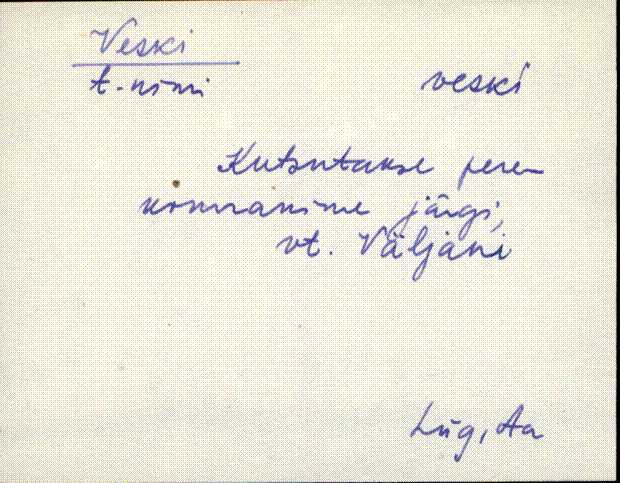 Veski
t.-nimi veski
Kutsutakse pere-
konnanime järgi,
vt. Väljani
Lüg, Aa